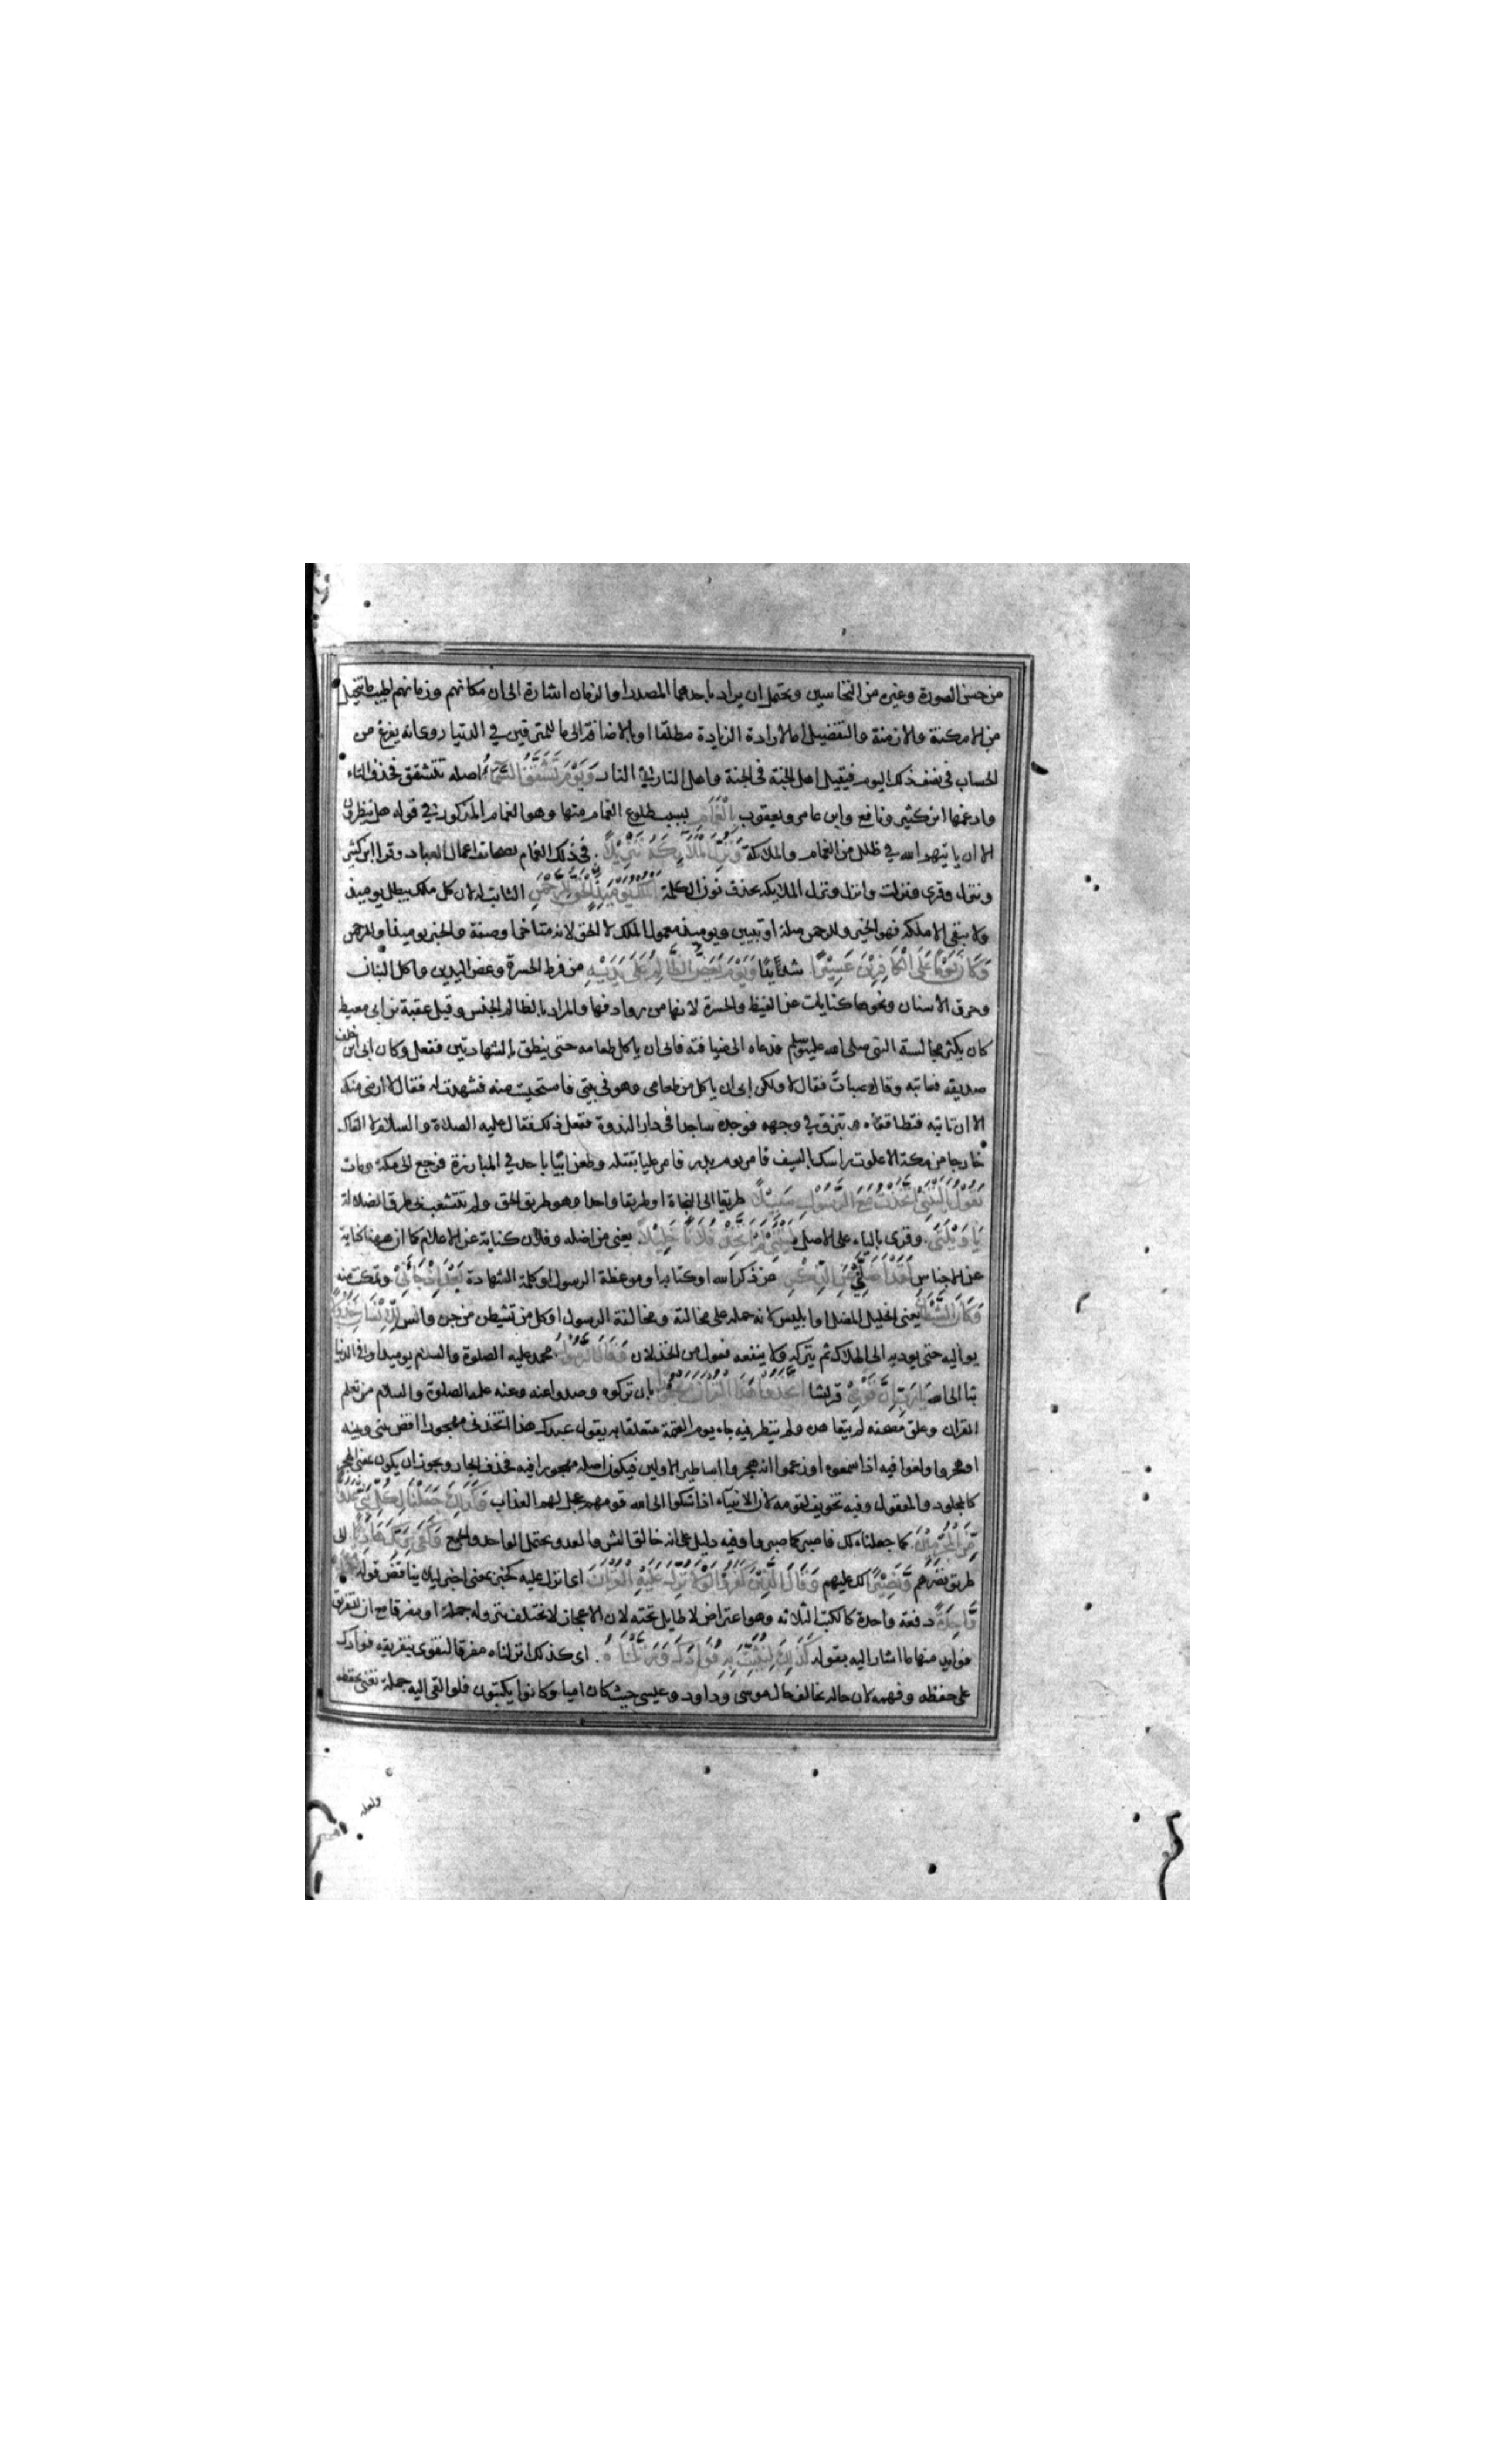 من حسن الصورة وغيره من التحاسين ويحتمل ان يراد باحدهما المصدر او الزمان اشارة الى ان مكانهم وزمانهم اطيب ما يتخيل
من الامكنة والازمنة والتفضيل اما لارادة الزيادة مطلقا او بالاضافة الى ما للمترفين في الدنيا روى انه يفرغ من
الحساب في نصف ذلك اليوم فيقيل اهل الجنة في الجنة واهل النار في النار وَيَوْمَ تَشَقَّقُ السَّمَاءُ اصله تتشقق فحذف التاء
وادغمها ابن كثير ونافع وابن عامر ويعقوب بِالْغَمَامِ بسبب طلوع الغمام منها وهو الغمام المذكور في قوله هل ينظرون
الا ان ياتيهم الله في ظلل من الغمام والملائكة وَنُزِّلَ الْمَلَآئِكَةُ تَنْزِيْلًا في ذلك الغمام بصحائف اعمال العباد وقرا ابن كثير
وننزل وقرى ونزلت وانزل ونزل الملايكة بحذف نون الكلمة اَلْمُلْكُ يَوْمَئِذٍ الْحَقُّ لِلرَّحْمٰنِ الثابت له لان كل ملك يبطل يوميذ
ولا يبقى الا ملكه فهو الخبر وللرحمن صلة او تبيين ويوميذ معمول الملك لا الحق لانه متاخر او صفة والخبر يوميذ او للرحمن
وَكَانَ يَوْمًا عَلَى الْكَافِرِيْنَ عَسِيْرًا شديدا وَيَوْمَ يَعَضُّ الظَّالِمُ عَلَى يَدَيْهِ من فرط الحسرة وعض اليدين واكل البنان
وحرق الاسنان ونحوها كنايات عن الغيظ والحسرة لانها من روادفها والمراد بالظالم الجنس وقيل عقبة بن ابي معيط
كان يكثر مجالسة النبي صلى الله عليه وسلم فدعاه الى ضيافته فابى ان ياكل طعامه حتى ينطق بالشهادتين ففعل وكان ابي ابن خلف
صديقه فعاتبه وقال صبأت فقال لا ولكن ابى ان ياكل من طعامي وهو في بيتي فاستحيت منه فشهدت له فقال لا ارضى منك
الا ان تاتيه فتطا قفاه وتبزق في وجهه فوجده ساجدا في دار الندوة ففعل ذلك فقال عليه الصلاة والسلام لا القاك
خارجا من مكة الا علوت راسك بالسيف فاسر يوم بدر فامر عليا بقتله وطعن ابيا باحد في المبارزة فرجع الى مكة ومات
يَقُوْلُ يَالَيْتَنِي اتَّخَذْتُ مَعَ الرَّسُوْلِ سَبِيْلًا طريقا الى النجاة او طريقا واحدا وهو طريق الحق ولم تتشعب بي طرق الضلالة
يَا وَيْلَتَى وقرى بالياء على الاصل لَيْتَنِي لَمْ اَتَّخِذْ فُلَانًا خَلِيْلًا يعني من اضله وفلان كناية عن الاعلام كما ان هنا كناية
عن الاجناس لَقَدْ اَضَلَّنِي عَنِ الذِّكْرِ عن ذكر الله او كتابه او موعظة الرسول او كلمة الشهادة بَعْدَ اِذْ جَآءَنِي وتمكنت منه
وَكَانَ الشَّيْطَانُ يعني الخليل المضل او ابليس لانه حمله على مخالته ومخالفة الرسول او كل من تشيطن من جن وانس لِلْاِنْسَانِ خَذُوْلًا
يواليه حتى يوديه الى الهلاك ثم يتركه ولا ينفعه فعول من الخذلان وَقَالَ الرَّسُوْلُ محمد عليه الصلوة والسلام يوميذ او في الدنيا
بثا الى الله يَارَبِّ اِنَّ قَوْمِي قريشا اتَّخَذُوْا هٰذَا الْقُرْآنَ مَهْجُوْرًا بان تركوه وصدوا عنه وعنه عليه الصلوة والسلام من تعلم
القرآن وعلق مصحفه لم يتعاهده ولم ينظر فيه جاء يوم القيمة متعلقا به يقول عبدك هذا اتخذني مهجورا اقض بيني وبينه
او هجروا ولغوا فيه اذا سمعوه او زعموا انه هجر واساطير الاولين فيكون اصله مهجورا فيه فحذف الجار ويجوز ان يكون بمعنى الهجر
كالمجلود والمعقول وفيه تخويف لقومه لان الانبياء اذا شكوا الى الله قومهم عجل لهم العذاب وَكَذَلِكَ جَعَلْنَا لِكُلِّ نَبِيٍّ عَدُوًّا
مِّنَ الْمُجْرِمِيْنَ كما جعلناه لك فاصبر كما صبروا وفيه دليل على انه خالق الشر والعدو يحتمل الواحد والجمع وَكَفَى بِرَبِّكَ هَادِيًا الى
طريق قهرهم وَّنَصِيْرًا لك عليهم وَقَالَ الَّذِيْنَ كَفَرُوْا لَوْلَا نُزِّلَ عَلَيْهِ الْقُرْآنُ اي انزل عليه كخبر بمعنى اخبر ليلا يناقض قوله جُمْلَةً
وَّاحِدَةً دفعة واحدة كالكتب الثلاثة وهو اعتراض لا طايل تحته لان الاعجاز لا يختلف بنزوله جملة او مفرقا مع ان للتفريق
فوايد منها ما اشار اليه بقوله كَذَلِكَ لِنُثَبِّتَ بِهِ فُؤَادَكَ وَرَتَّلْنَاهُ اي كذلك انزلناه مفرقا لنقوي بتفريقه فوادك
على حفظه وفهمه لان حاله يخالف حال موسى وداود وعيسى حيث كان اميا وكانوا يكتبون فلو القي اليه جملة تعنى بحفظه
ولعله